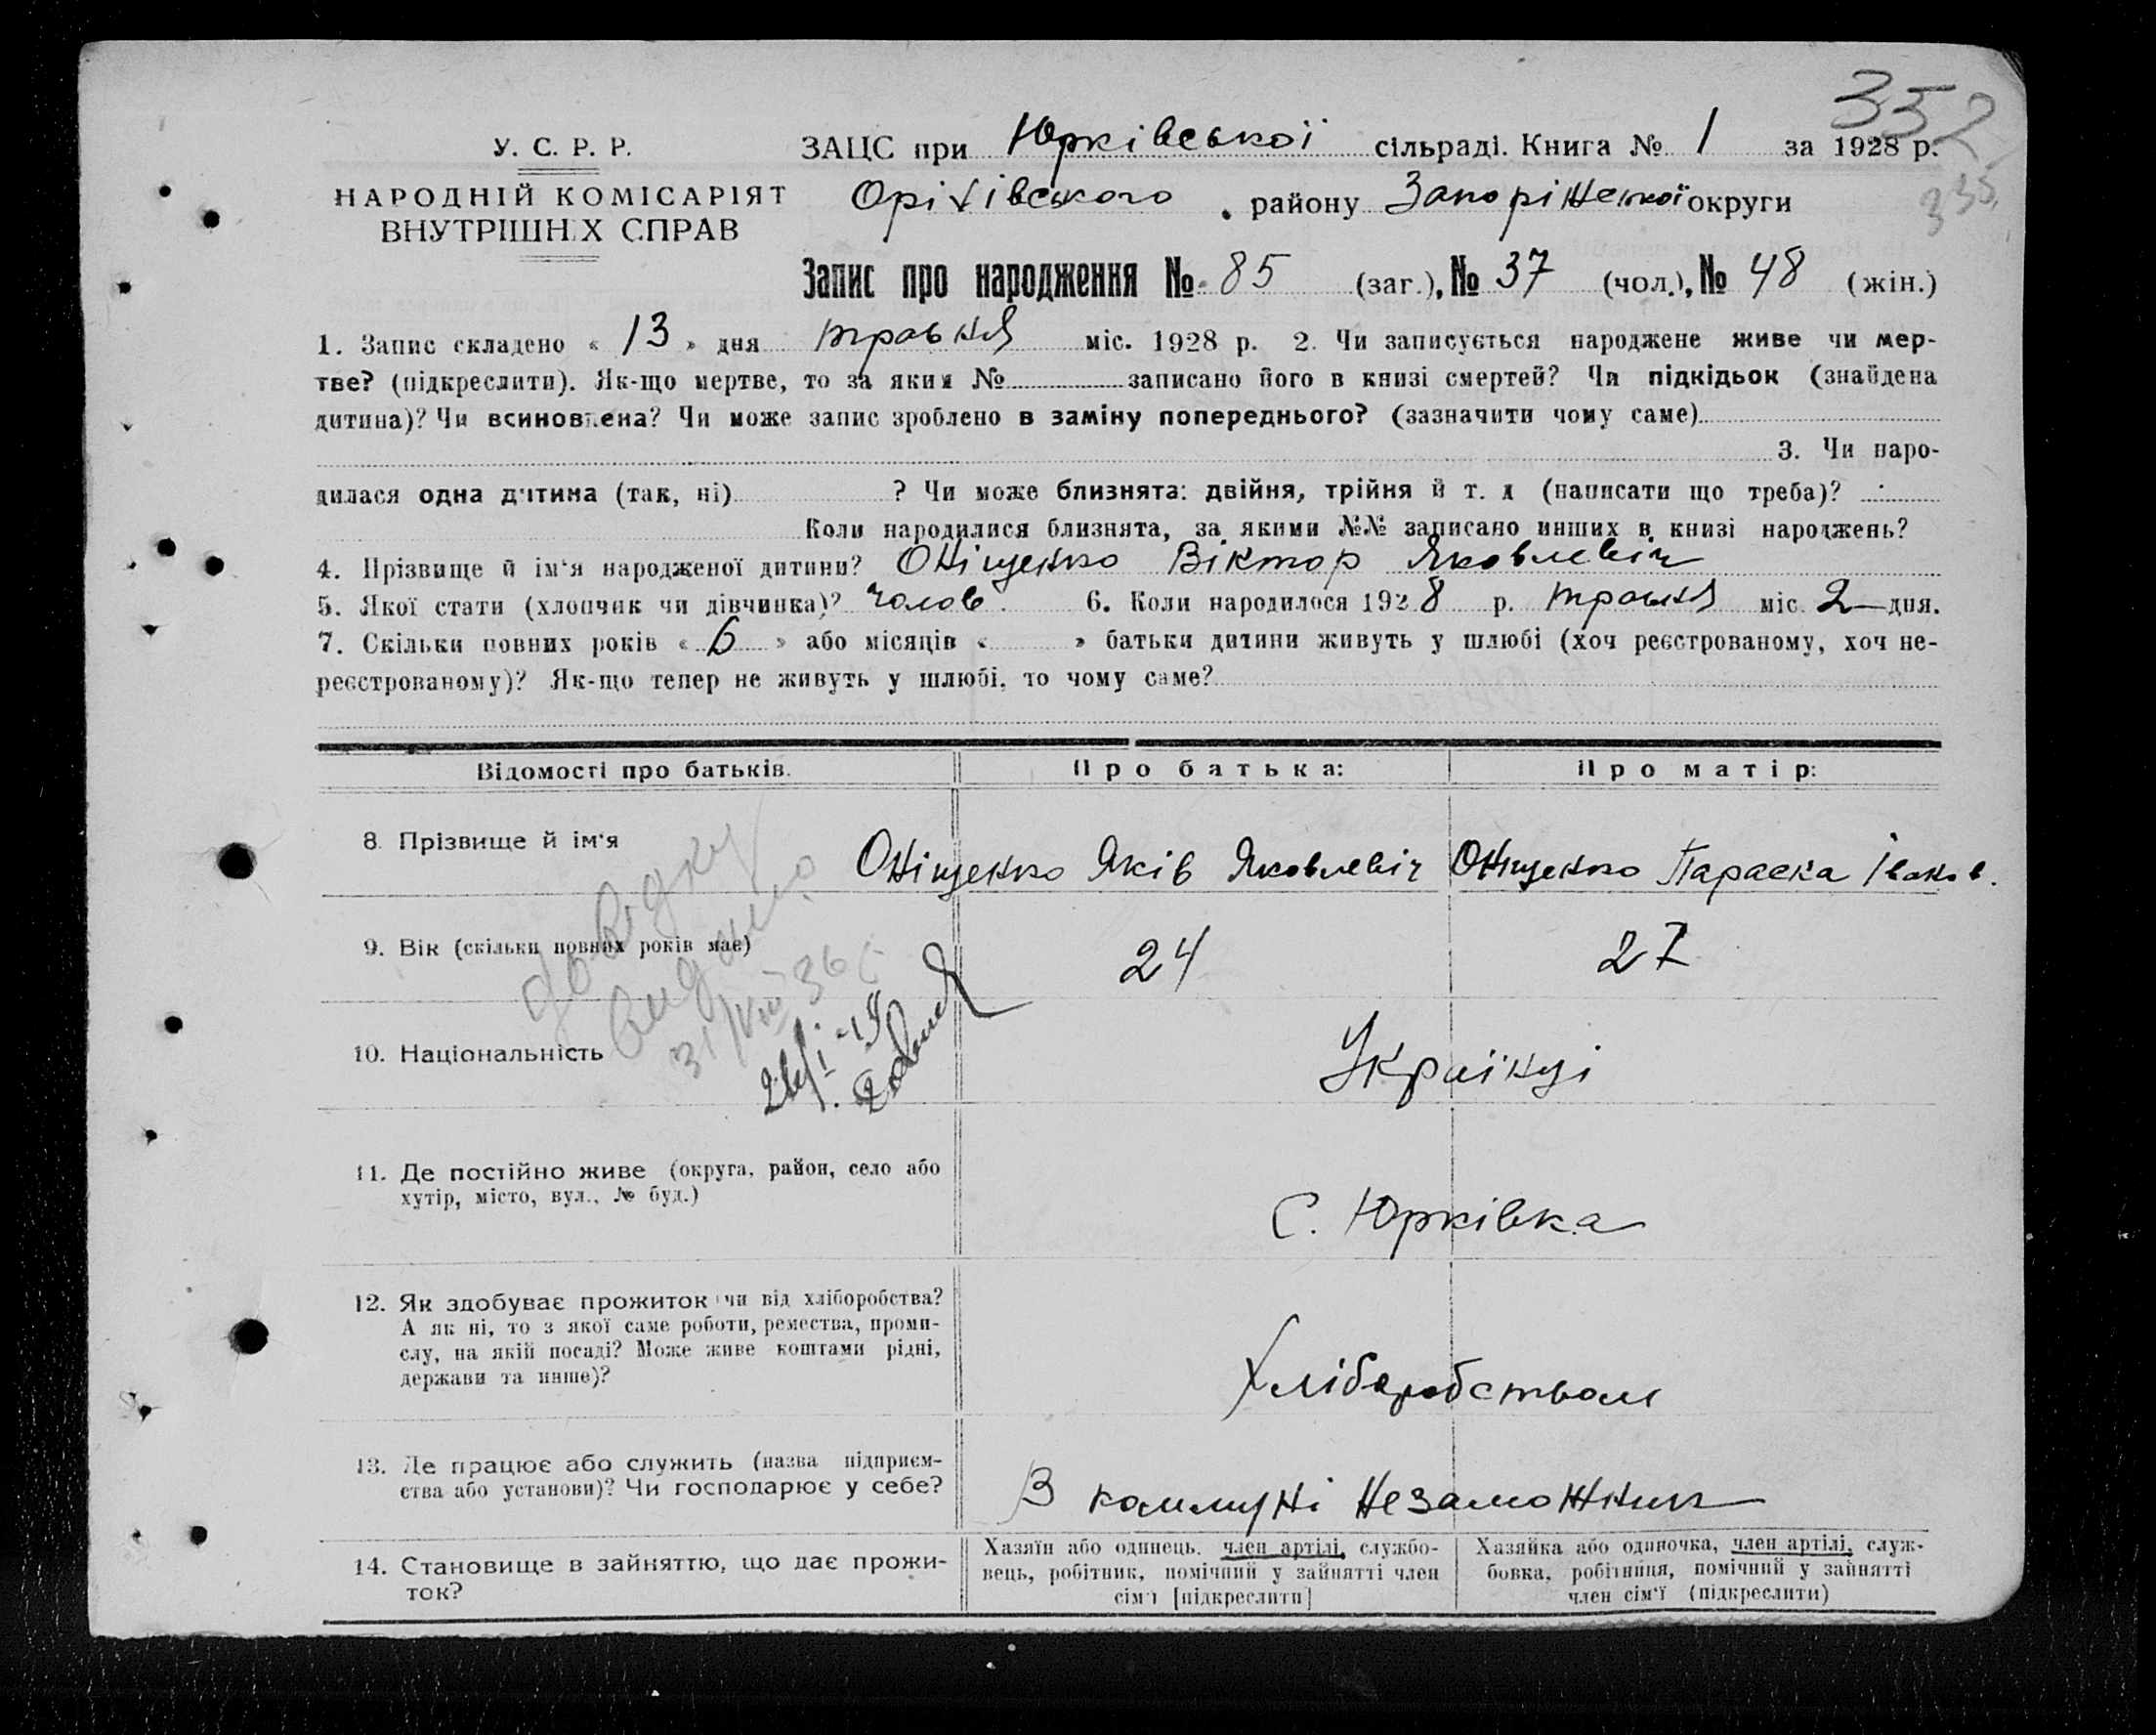 352
335
У. С. Р. Р.
НАРОДНІЙ КОМІСАРІЯТ
ВНУТРІШНІХ СПРАВ
ЗАЦС при Юрківської сільраді. Книга № 1 за 1928 р.
Оріхівського району Запоріжської округи
Запис про народження № 85 (заг.), № 37 (чол.), № 48 (жін.)
1. Запис складено « 13 » дня травня міс. 1928 р. 2. Чи записується народжене живе чи мер-
тве? (підкреслити). Як-що мертве, то за яким № записано його в книзі смертей? Чи підкідьок (знайдена
дитина)? Чи всиновлена? Чи може запис зроблено в заміну попереднього? (зазначити чому саме)
3. Чи наро-
дилася одна дитина (так, ні) ? Чи може близнята: двійня, трійня й т. д (написати що треба)?
Коли народилися близнята, за якими №№ записано инших в книзі народжень?
4. Прізвище й ім'я народженої дитини? Оніщенко Віктор Яковлевіч
5. Якої стати (хлопчик чи дівчинка)? чолов. 6. Коли народилося 1928 р. травня міс. 2 дня.
7. Скільки повних років « 6 » або місяців « » батьки дитини живуть у шлюбі (хоч реєстрованому, хоч не-
реєстрованому)? Як-що тепер не живуть у шлюбі, то чому саме?
Відомості про батьків. Про батька: Про матір:
8. Прізвище й ім'я Оніщенко Яків Яковлевіч Оніщенко Параска Іванов.
довідку
видано
9. Вік (скільки повних років має) 24 27
31/VIII 36
10. Національність Українці
11. Де постійно живе (округа, район, село або
хутір, місто, вул., № буд.) С. Юрківка
12. Як здобуває прожиток чи від хліборобства?
А як ні, то з якої саме роботи, ремества, проми-
слу, на якій посаді? Може живе коштами рідні,
держави та инше)? Хліборобством
13. Де працює або служить (назва підприєм-
ства або установи)? Чи господарює у себе? В коммуні Незаможник
14. Становище в зайняттю, що дає прожи-
ток?
Хазяїн або одинець, член артілі, службо-
вець, робітник, помічний у зайнятті член
сім'ї [підкреслити]
Хазяйка або одиночка, член артілі, служ-
бовка, робітниця, помічний у зайнятті
член сім'ї (підкреслити)